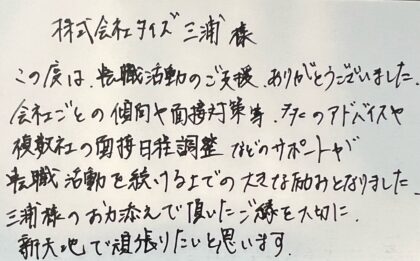 株式会社タイズ 三浦様
この度は、転職活動のご支援、ありがとうございました。
会社ごとの傾向や面接対策等、多くのアドバイスや
複数社の面接日程調整などのサポートが
転職活動を続ける上での大きな励みとなりました。
三浦様のお力添えで頂いたご縁を大切に、
新天地で頑張りたいと思います。